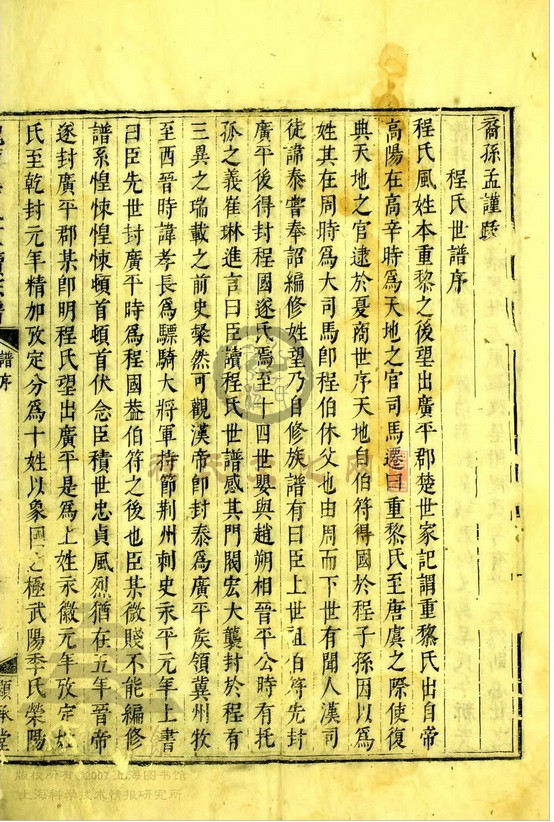 裔孫孟謹
程氏世譜序
程氏風姓本重黎之後望出廣平郡楚世家記謂重黎氏出自帝
高陽在高辛時爲天地之官司馬遷曰重黎氏至唐虞之際使復
典天地之官逮於夏商世序天地自伯符得國於程子孫因以爲
姓其在周時爲大司馬卽程伯休父也由周而下世有聞人漢司
徒諱泰嘗奉詔編修姓望乃自修族譜有曰臣上世祖伯符先封
廣平後得封程國遂氏焉至十四世嬰與趙朔相晉平公時有托
孤之義崔琳進言曰臣讀程氏世譜感其門閥宏大襲封於程有
三異之瑞載之前史粲然可觀漢帝卽封泰爲廣平矦領冀州牧
至西晉時諱孝長爲驃騎大將軍持節荆州刺史永平元年上書
曰臣先世封廣平時爲程國葢伯符之後也臣某微賤不能編修
譜系惶悚惶悚頓首頓首伏念臣積世忠貞風烈猶在五年晉帝
遂封廣平郡某卽明程氏望出廣平是爲上姓永徽元年攷定
氏至乾封元年精加攷定分爲十姓以象國之極武陽季氏榮陽
譜序
顯承堂
版权所有 2007 上海图书馆
上海科学技术情报研究所